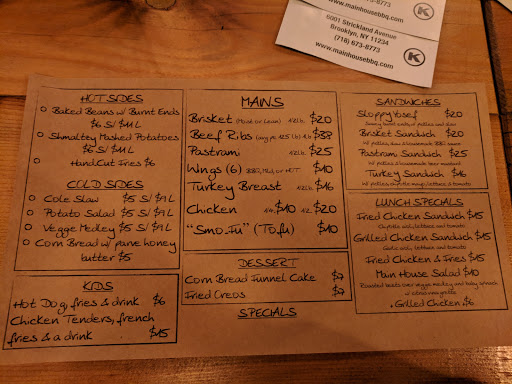 www.mainhousebbq.com
6001 Strickland Avenue
Brooklyn, NY 11234
(718) 673-8773
www.mainhousebbq.com
K
673-8773
K
HOT SIDES
Baked Beans w/ Burnt Ends
$6 S/ $11 L
Shmaltzy Mashed Potatoes
$6 S/ $11 L
Hand Cut Fries $6
COLD SIDES
Cole Slaw $5 S/ $9 L
Potato Salad $5 S/ $9 L
Veggie Medley $5 S/ $9 L
Corn Bread w/ parve honey
butter $5
KIDS
Hot Dog, fries & drink $6
Chicken Tenders, french
fries & a drink $15
MAINS
Brisket (Moist or Lean) 1/2 lb. $20
Beef Ribs
Pastrami 1/2 lb. $25
Wings (6) BBQ, Mild, or HOT $10
Turkey Breast 1/2 lb. $16
Chicken 1/4 $10 1/2 $20
"Smo-Fu" (Tofu) $10
DESSERT
Corn Bread Funnel Cake $7
Fried Oreos $7
SPECIALS
SANDWICHES
Sloppy Yosef $20
Brisket Sandwich $20
Pastrami Sandwich $25
Turkey Sandwich $16
LUNCH SPECIALS
Fried Chicken Sandwich $15
Grilled Chicken Sandwich $15
Fried Chicken & Fries $15
Main House Salad $10
Roasted beets over veggie medley and baby spinach
w/ citrus vinaigrette
+ Grilled Chicken $6